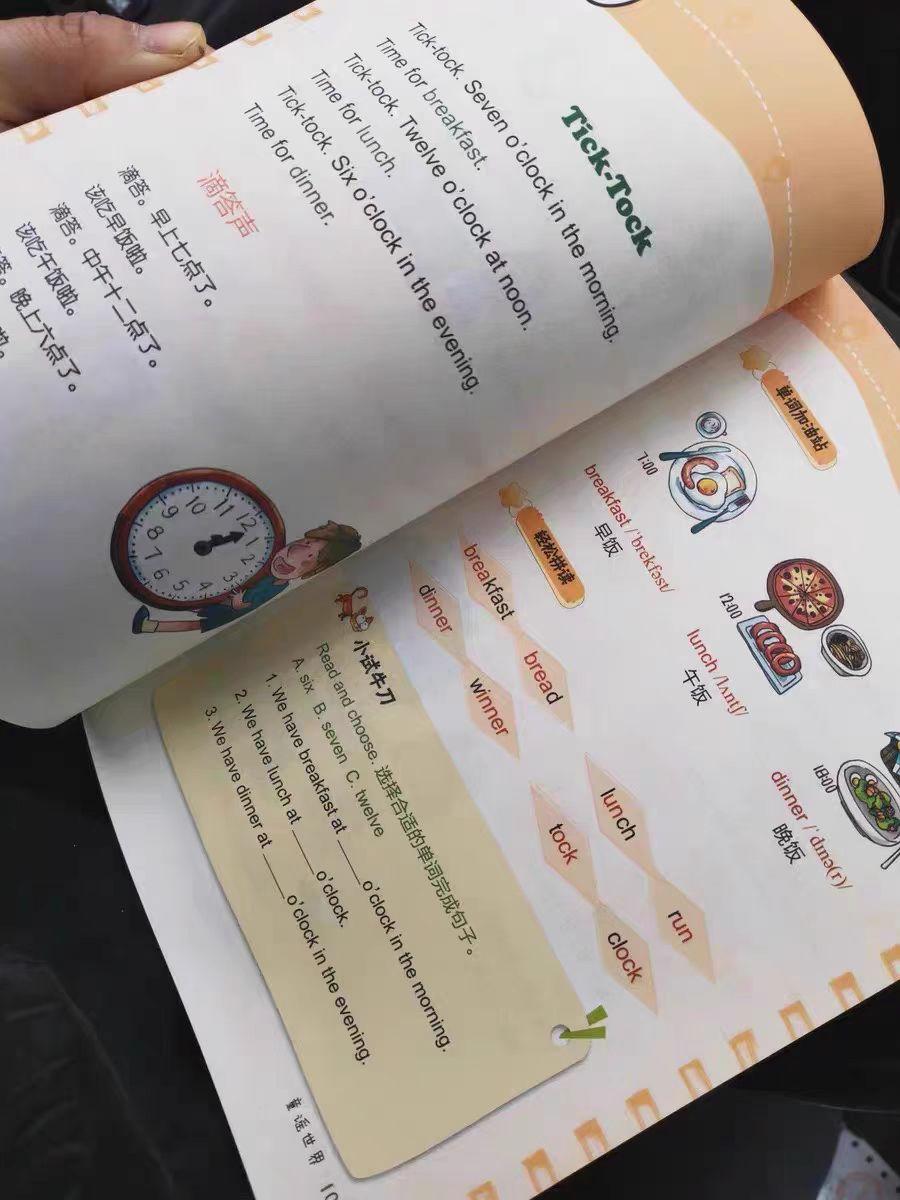 Tick-Tock
Tick-tock. Seven o'clock in the morning.
Time for breakfast.
Tick-tock. Twelve o'clock at noon.
Time for lunch.
Tick-tock. Six o'clock in the evening.
Time for dinner.
滴答声
滴答。早上七点了。
该吃早饭啦。
滴答。中午十二点了。
该吃午饭啦。
答。晚上六点了。
11 12 1 2 3 4 5 6 7 8 9 10
单词加油站
7:00
breakfast /ˈbrekfəst/
早饭
12:00
lunch /lʌntʃ/
午饭
18:00
dinner /ˈdɪnə(r)/
晚饭
轻松拼读
breakfast bread
dinner winner
lunch run
tock clock
小试牛刀
Read and choose. 选择合适的单词完成句子。
A. six B. seven C. twelve
1. We have breakfast at ____ o'clock in the morning.
2. We have lunch at ____ o'clock.
3. We have dinner at ____ o'clock in the evening.
童谣世界